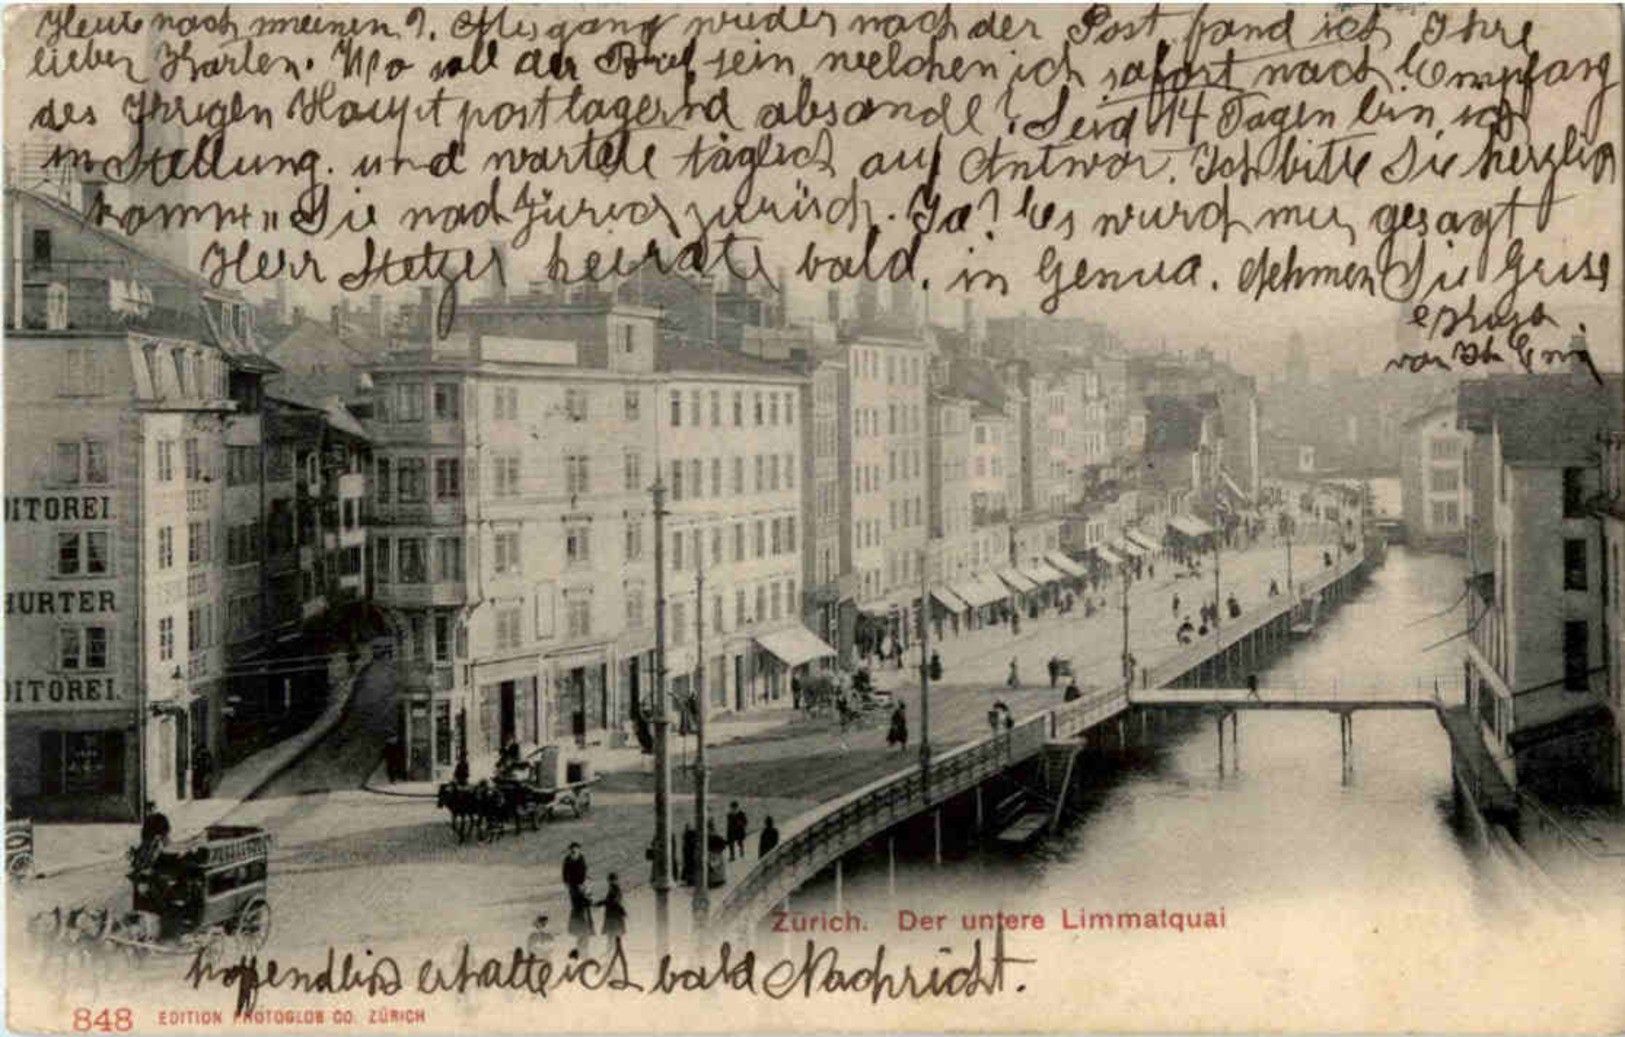 Heute nach meinem 9. Ausgang wieder nach der Post fand ich Ihre
lieben Karten. Wo soll der Brief sein welchen ich sofort nach Empfang
des Ihrigen Hauptpostlagernd absandte! Seid 14 Tagen bin ich
in Stellung. und wartete täglich auf Antwor. Ich bitte Sie herzlich
komm Sie nach Zürich zurück. Ja? Es wurd mir gesagt
Herr Stetzer heirate bald. in Genua. Nehmen Sie Grüse
von
DITOREI.
HURTER
DITOREI.
Zürich. Der untere Limmatquai
hoffendlich erhalte ich bald Nachricht.
848 EDITION PHOTOGLOB CO. ZÜRICH